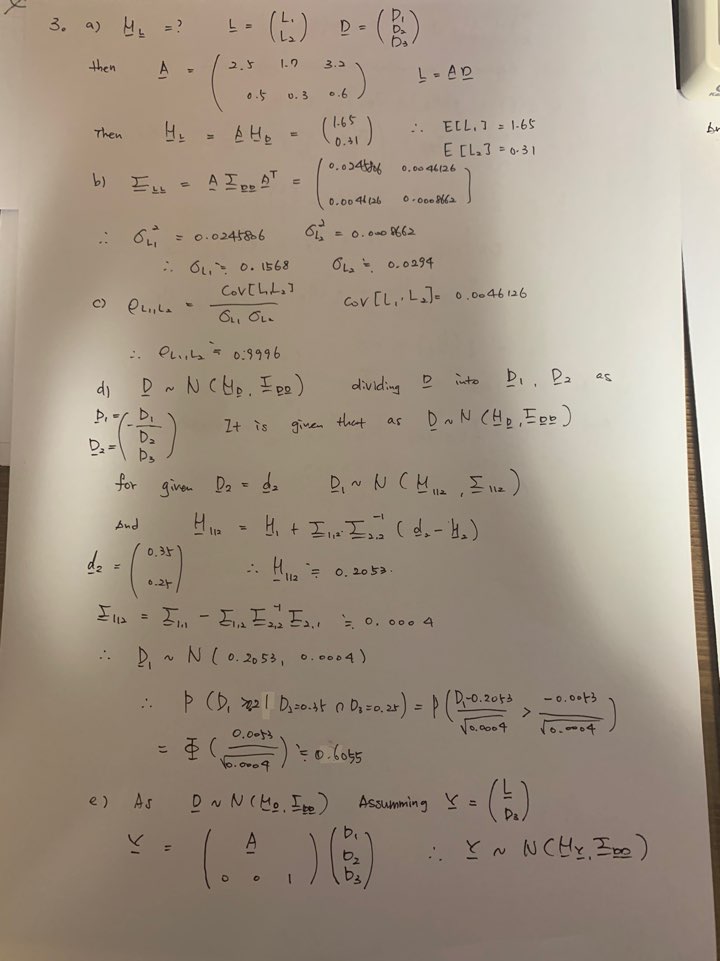 3. a) M_L = ? L = (L₁ L₂) D = (D₁ D₂ D₃)
then A = (2.5 1.7 3.2
0.5 0.3 0.6) L = A D
Then M_L = A M_D = (1.65 0.31) ∴ E[L₁] = 1.65
E[L₂] = 0.31
b) Σ_LL = A Σ_DD Aᵀ = (0.0245806 0.0046126
0.0046126 0.0008662)
∴ σ_L₁² = 0.0245806 σ_L₂² = 0.0008662
∴ σ_L₁ ≒ 0.1568 σ_L₂ ≒ 0.0294
c) ρ_L₁,L₂ = Cov[L₁L₂] / σ_L₁ σ_L₂ Cov[L₁,L₂] = 0.0046126
∴ ρ_L₁,L₂ ≒ 0.9996
d) D ~ N(M_D, Σ_DD) dividing D into D₁, D₂ as
D₁ = D₂ = (D₁ D₂ D₃) It is given that as D ~ N(M_D, Σ_DD)
for given D₂ = d₂ D₁ ~ N(M_1|2, Σ_1|2)
And M_1|2 = M₁ + Σ_1,2 Σ_2,2⁻¹ (d₂ - M₂)
d₂ = (0.35 0.25) ∴ M_1|2 ≒ 0.2053.
Σ_1|2 = Σ_1,1 - Σ_1,2 Σ_2,2⁻¹ Σ_2,1 ≒ 0.0004
∴ D₁ ~ N(0.2053, 0.0004)
∴ P(D₁ | D₂=0.35 ∩ D₃=0.25) = P((D₁-0.2053)/√0.0004 > -0.0053/√0.0004)
= Φ(0.0053/√0.0004) ≒ 0.6055
e) As D ~ N(M_D, Σ_DD) Assumming Y = (L D₃)
Y = (A
0 0 1) (D₁ D₂ D₃) ∴ Y ~ N(M_Y, Σ_DD)